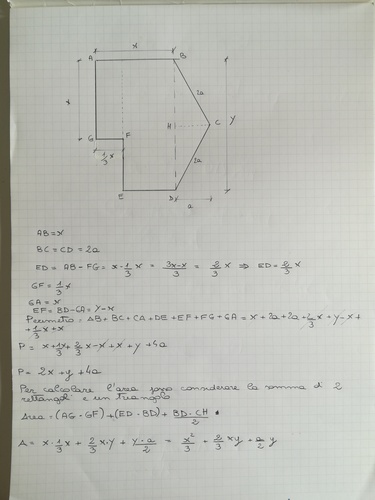 x
A
B
x
2a
H
C
y
G
F
1/3 x
2a
E
D
a
AB = x
BC = CD = 2a
ED = AB - FG = x - 1/3 x = 3x-x/3 = 2/3 x ⇒ ED = 2/3 x
GF = 1/3 x
GA = x
EF = BD - GA = y - x
Perimetro = AB + BC + CA + DE + EF + FG + GA = x + 2a + 2a + 2/3 x + y - x +
+ 1/3 x + x
P = x + 1/3 x + 2/3 x - x + x + y + 4a
P = 2x + y + 4a
Per calcolare l'area posso considerare la somma di 2
rettangoli e un triangolo
Area = (AG · GF) + (ED · BD) + BD · CH / 2
A = x · 1/3 x + 2/3 x · y + y · a / 2 = x²/3 + 2/3 xy + a/2 y